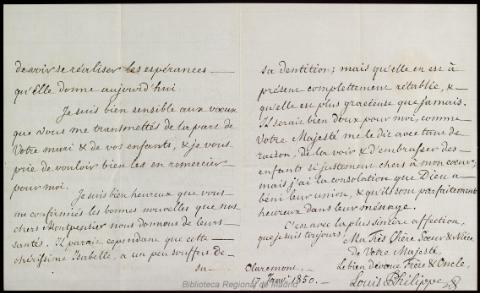 devoir se réaliser les espérances
qu'Elle donne aujourd'hui
Je suis bien sensible aux voeux
que Vous me transmettés de la part de
Votre mari & de vos enfants, & je vous
prie de vouloir bien les en remercier
pour moi.
Je suis bien heureux que vous
me confirmiés les bonnes nouvelles que nos
chers Montpensier nous donnons de leurs
santés. Il parait cependant que cette
chérissime Isabelle, a un peu souffert de
sa
sa dentition; mais qu'elle en est à
présent complettement rétablie, &
qu'elle est plus gracieuse que jamais.
Il serait bien doux pour moi, comme
Votre Majesté me le dit avec tant de
raison, de la voir & d'embrasser des
enfants si justement chers à mon coeur;
mais j'ai la consolation que Dieu a
beni leur union, & qu'ils sont parfaitement
heureux dans leur ménage.
C'est avec la plus sincère affection,
que je suis toujours,
Ma Très Chère Soeur & Nièce
de Votre Majesté,
Claremont.
Le bien dévoué Frère & Oncle,
17 Janv. 1850.
Louis Philippe
Biblioteca Regional de Madrid